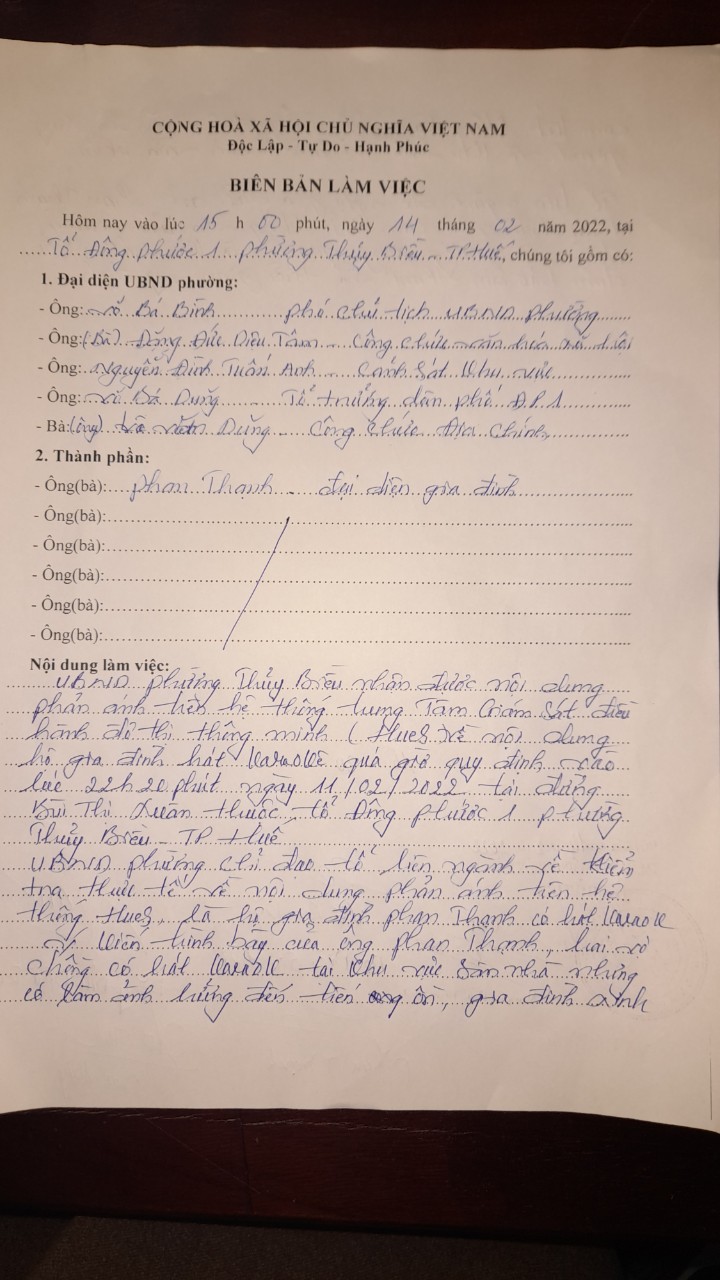 CỘNG HOÀ XÃ HỘI CHỦ NGHĨA VIỆT NAM
Độc Lập - Tự Do - Hạnh Phúc
BIÊN BẢN LÀM VIỆC
Hôm nay vào lúc 15 h 00 phút, ngày 14 tháng 02 năm 2022, tại
Tổ Đông Phước 1 phường Thủy Biều - TP Huế, chúng tôi gồm có:
1. Đại diện UBND phường:
- Ông: Võ Bá Bình phó chủ tịch UBND phường
- Ông:(Bà) Đặng Đức Diệu Tâm Công chức văn hoá xã hội
- Ông: Nguyễn Đình Tuấn Anh Cảnh Sát Khu vực
- Ông: Bá Dũng Tổ trưởng dân phố Đ.P.1
- Bà:(ông) Dũng Công chức Địa Chính
2. Thành phần:
- Ông(bà): Phan Thạnh đại diện gia đình
- Ông(bà):
- Ông(bà):
- Ông(bà):
- Ông(bà):
- Ông(bà):
Nội dung làm việc:
UBND phường Thủy Biều nhận được nội dung
phản ánh trên hệ thống trung Tâm Giám Sát điều
hành đô thị thông minh (HueS) về nội dung
hộ gia đình hát Karaoke quá giờ quy định vào
lúc 22h20 phút ngày 11/02/2022 tại đường
Bùi Thị Xuân thuộc tổ Đông phước 1 phường
Thủy Biều - TP Huế
UBND phường chỉ đạo tổ liên ngành về kiểm
tra thực tế về nội dung phản ánh trên hệ
thống HueS, là hộ gia đình phan Thạnh có hát Karaok
Ý Kiến trình bày của ông Phan Thạnh, hai vợ
chồng có hát Karaok tại khu vực sân nhà nhưng
có làm ảnh hưởng đến tiếng ồn, gia đình xinh